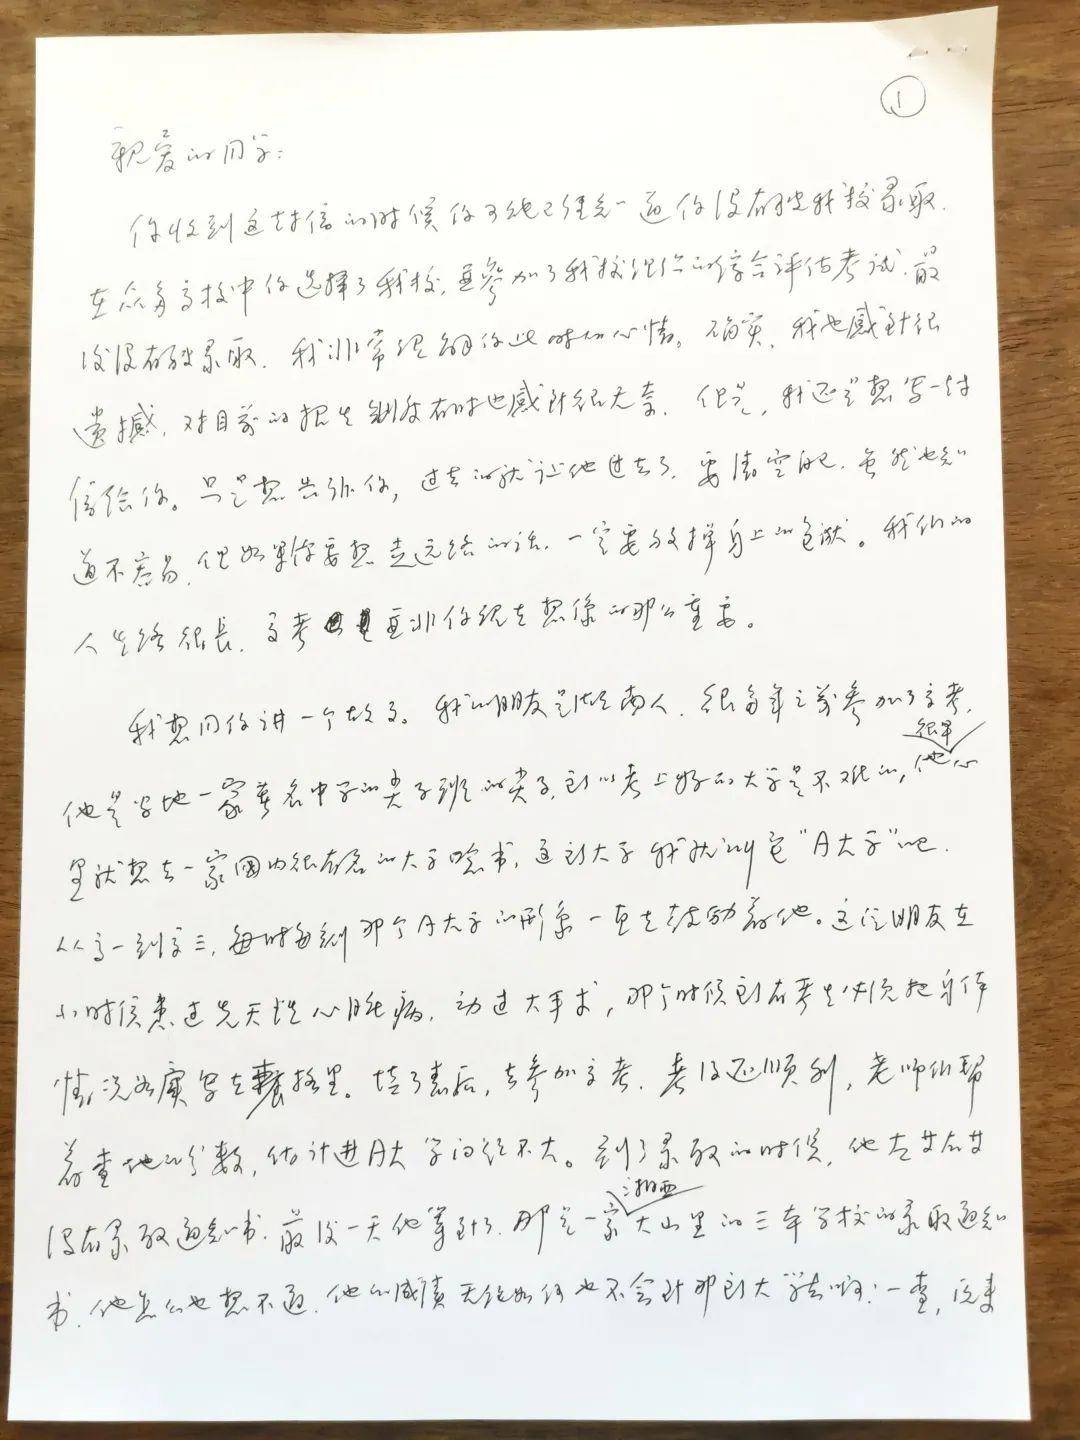 ①
亲爱的同学：
你收到这封信的时候你可能已经知道你没有被我校录取.
在众多高校中你选择了我校,且参加了我校组织的综合评估考试,最
后没有被录取,我非常理解你此时的心情。确实,我也感到很
遗憾,对目前的招生制度有时也感到很无奈.但是,我还是想写一封
信给你。只是想告诉你,过去的就让他过去了,要清空自己,虽然也知
道不容易,但如果你要想走远路的话,一定要放掉身上的包袱。我们的
人生路很长,高考并非你现在想像的那么重要。
我想同你讲一个故事。我的朋友是湖南人,很多年之前参加了高考,
他是当地一家著名中学的尖子班的尖子,所以考上好的大学是不难的,他很早心
里就想去一家国内很有名的大学念书,这所大学我就叫它“A大学”吧.
从高一到高三,每时每刻那个A大学的形象一直在鼓励着他。这位朋友在
小时候患过先天性心脏病,动过大手术,那个时候所有考生必须把身体
情况如实写在表格里。填了表后,去参加高考,考得还顺利,老师们帮
着查他的分数,估计进A大学问题不大。到了录取的时候,他左等右等
没有录取通知书.最后一天他等到了,那是一家湘西大山里的三本学校的录取通知
书.他怎么也想不通,他的成绩无论如何也不会到那所大学去啊!一查,原来